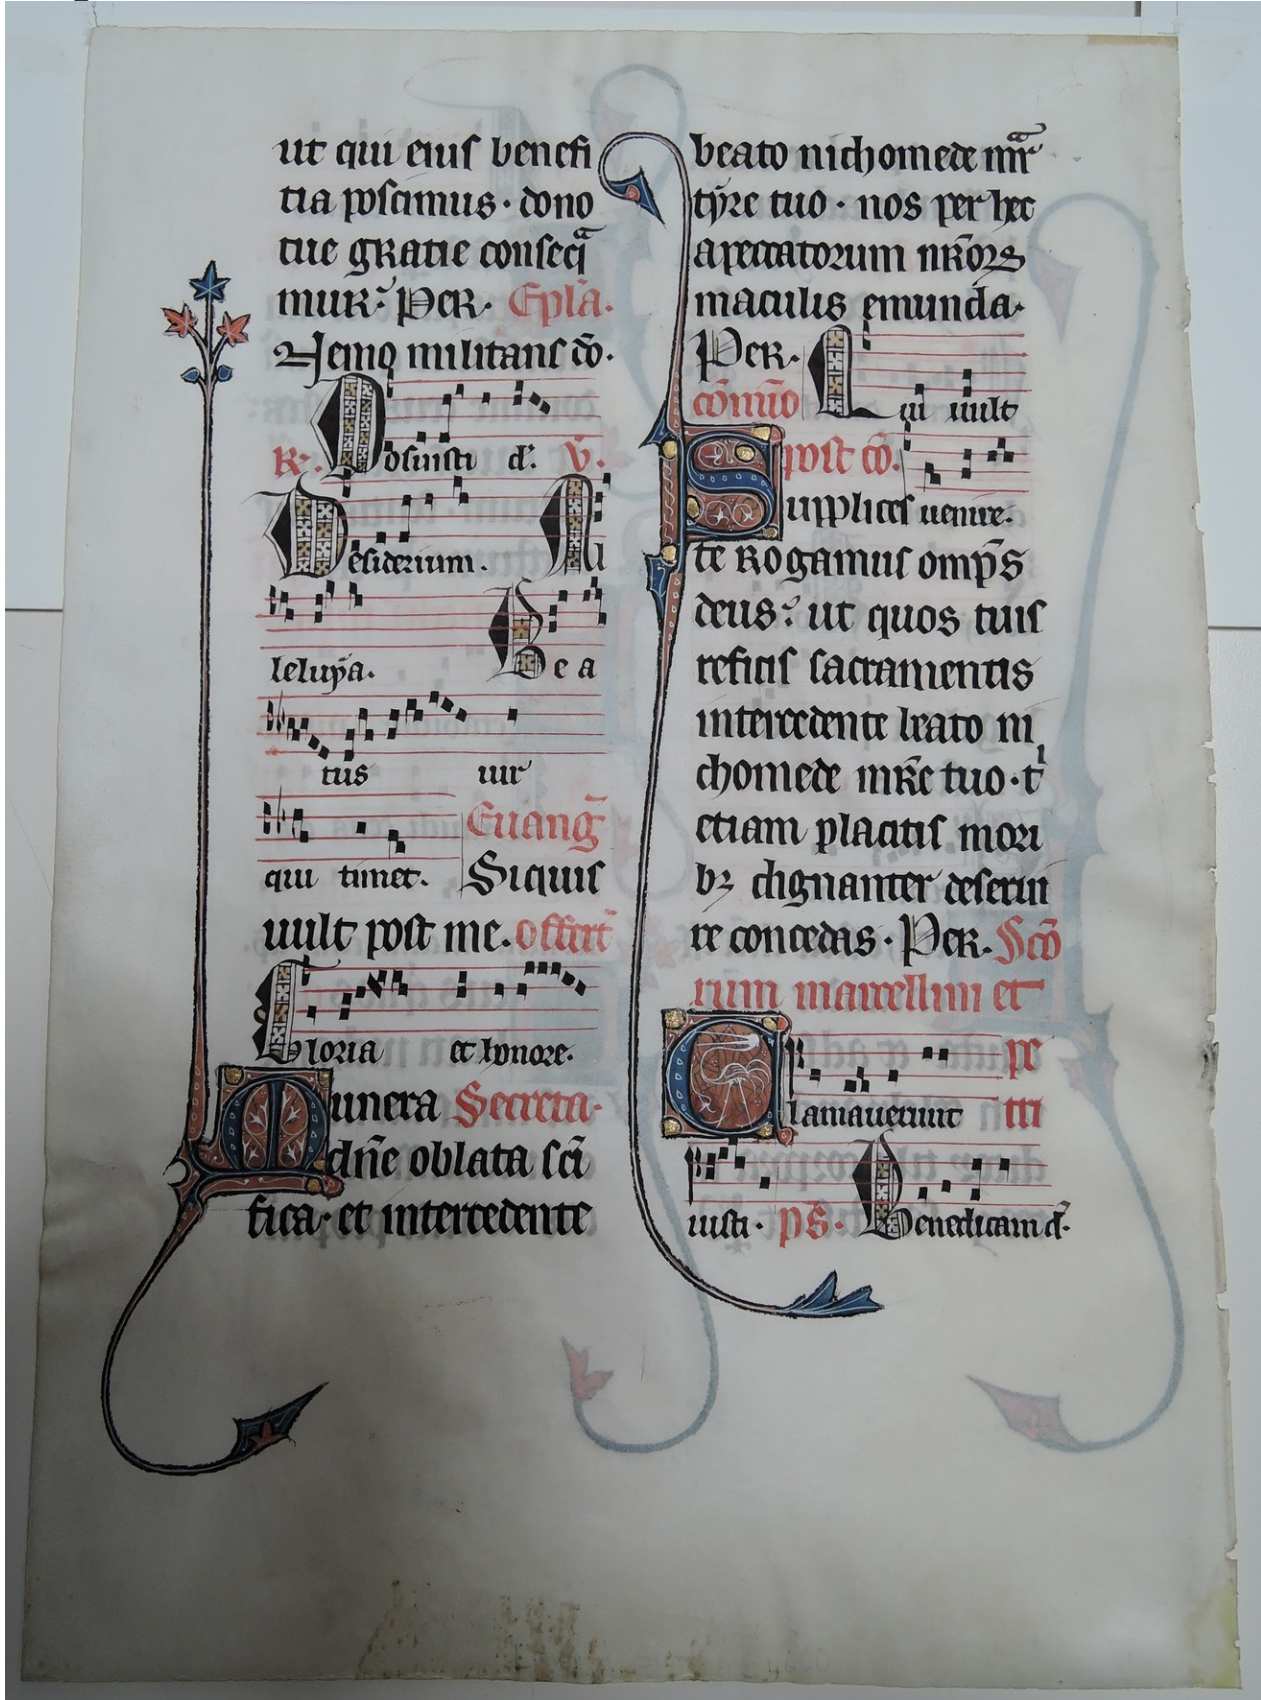 ut qui eiuſ benefi
tia poſcimus · dono
tue gratie conſeqͣ
mur · Per · Epl̄a ·
Nemo militanſ dō ·
R̷ · Poſuiſti d̄ · V̄ ·
Desiderium · All
leluya ·
Bea
tus uir
Euanḡ
qui timet · Siquiſ
uult poſt me · offert̄
Gloria et honore ·
Munera Secreta ·
dn̄e oblata ſcī
fica · et intercedente
beato nichomede mr̄
tyre tuo · nos per hec
a peccatorum nr̄orꝝ
maculis emunda ·
Per · Qui uult
cōmūo
poſt cō ·
Supplices uenire ·
te rogamuſ omp̄s
deus · ut quos tuiſ
reficiſ ſacramentis
intercedente beato ni
chomede mr̄e tuo · t̄
etiam placitiſ mori
bꝫ dignanter deſerui
re concedas · Per · Scō
rum marcellini et
pe
Clamauerunt tri
iuſti · pſ̄ · Benedicam d̄ ·